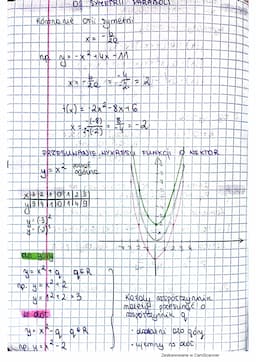 OŚ SYMETRII PARABOLI
Równanie osi symetrii
x = -b/2a
np. y = -x² + 4x - 11
x = -b/2a = -4/-2 = 2
f(x) = -2x² - 8x + 6
x = -(-8)/2·(-2) = 8/-4 = -2
PRZESUWANIE WYKRESU FUNKCJI O WEKTOR
y = x²
do góry
y = x² + q q∈R
np. y = x² + 2
w dół
y = x² - q q∈R
np. y = x² - 2
Każdy współczynnik
należy przesunąć o
współczynnik q
- dodatni do góry
- ujemny na dół
Zeskanowane w CamScanner